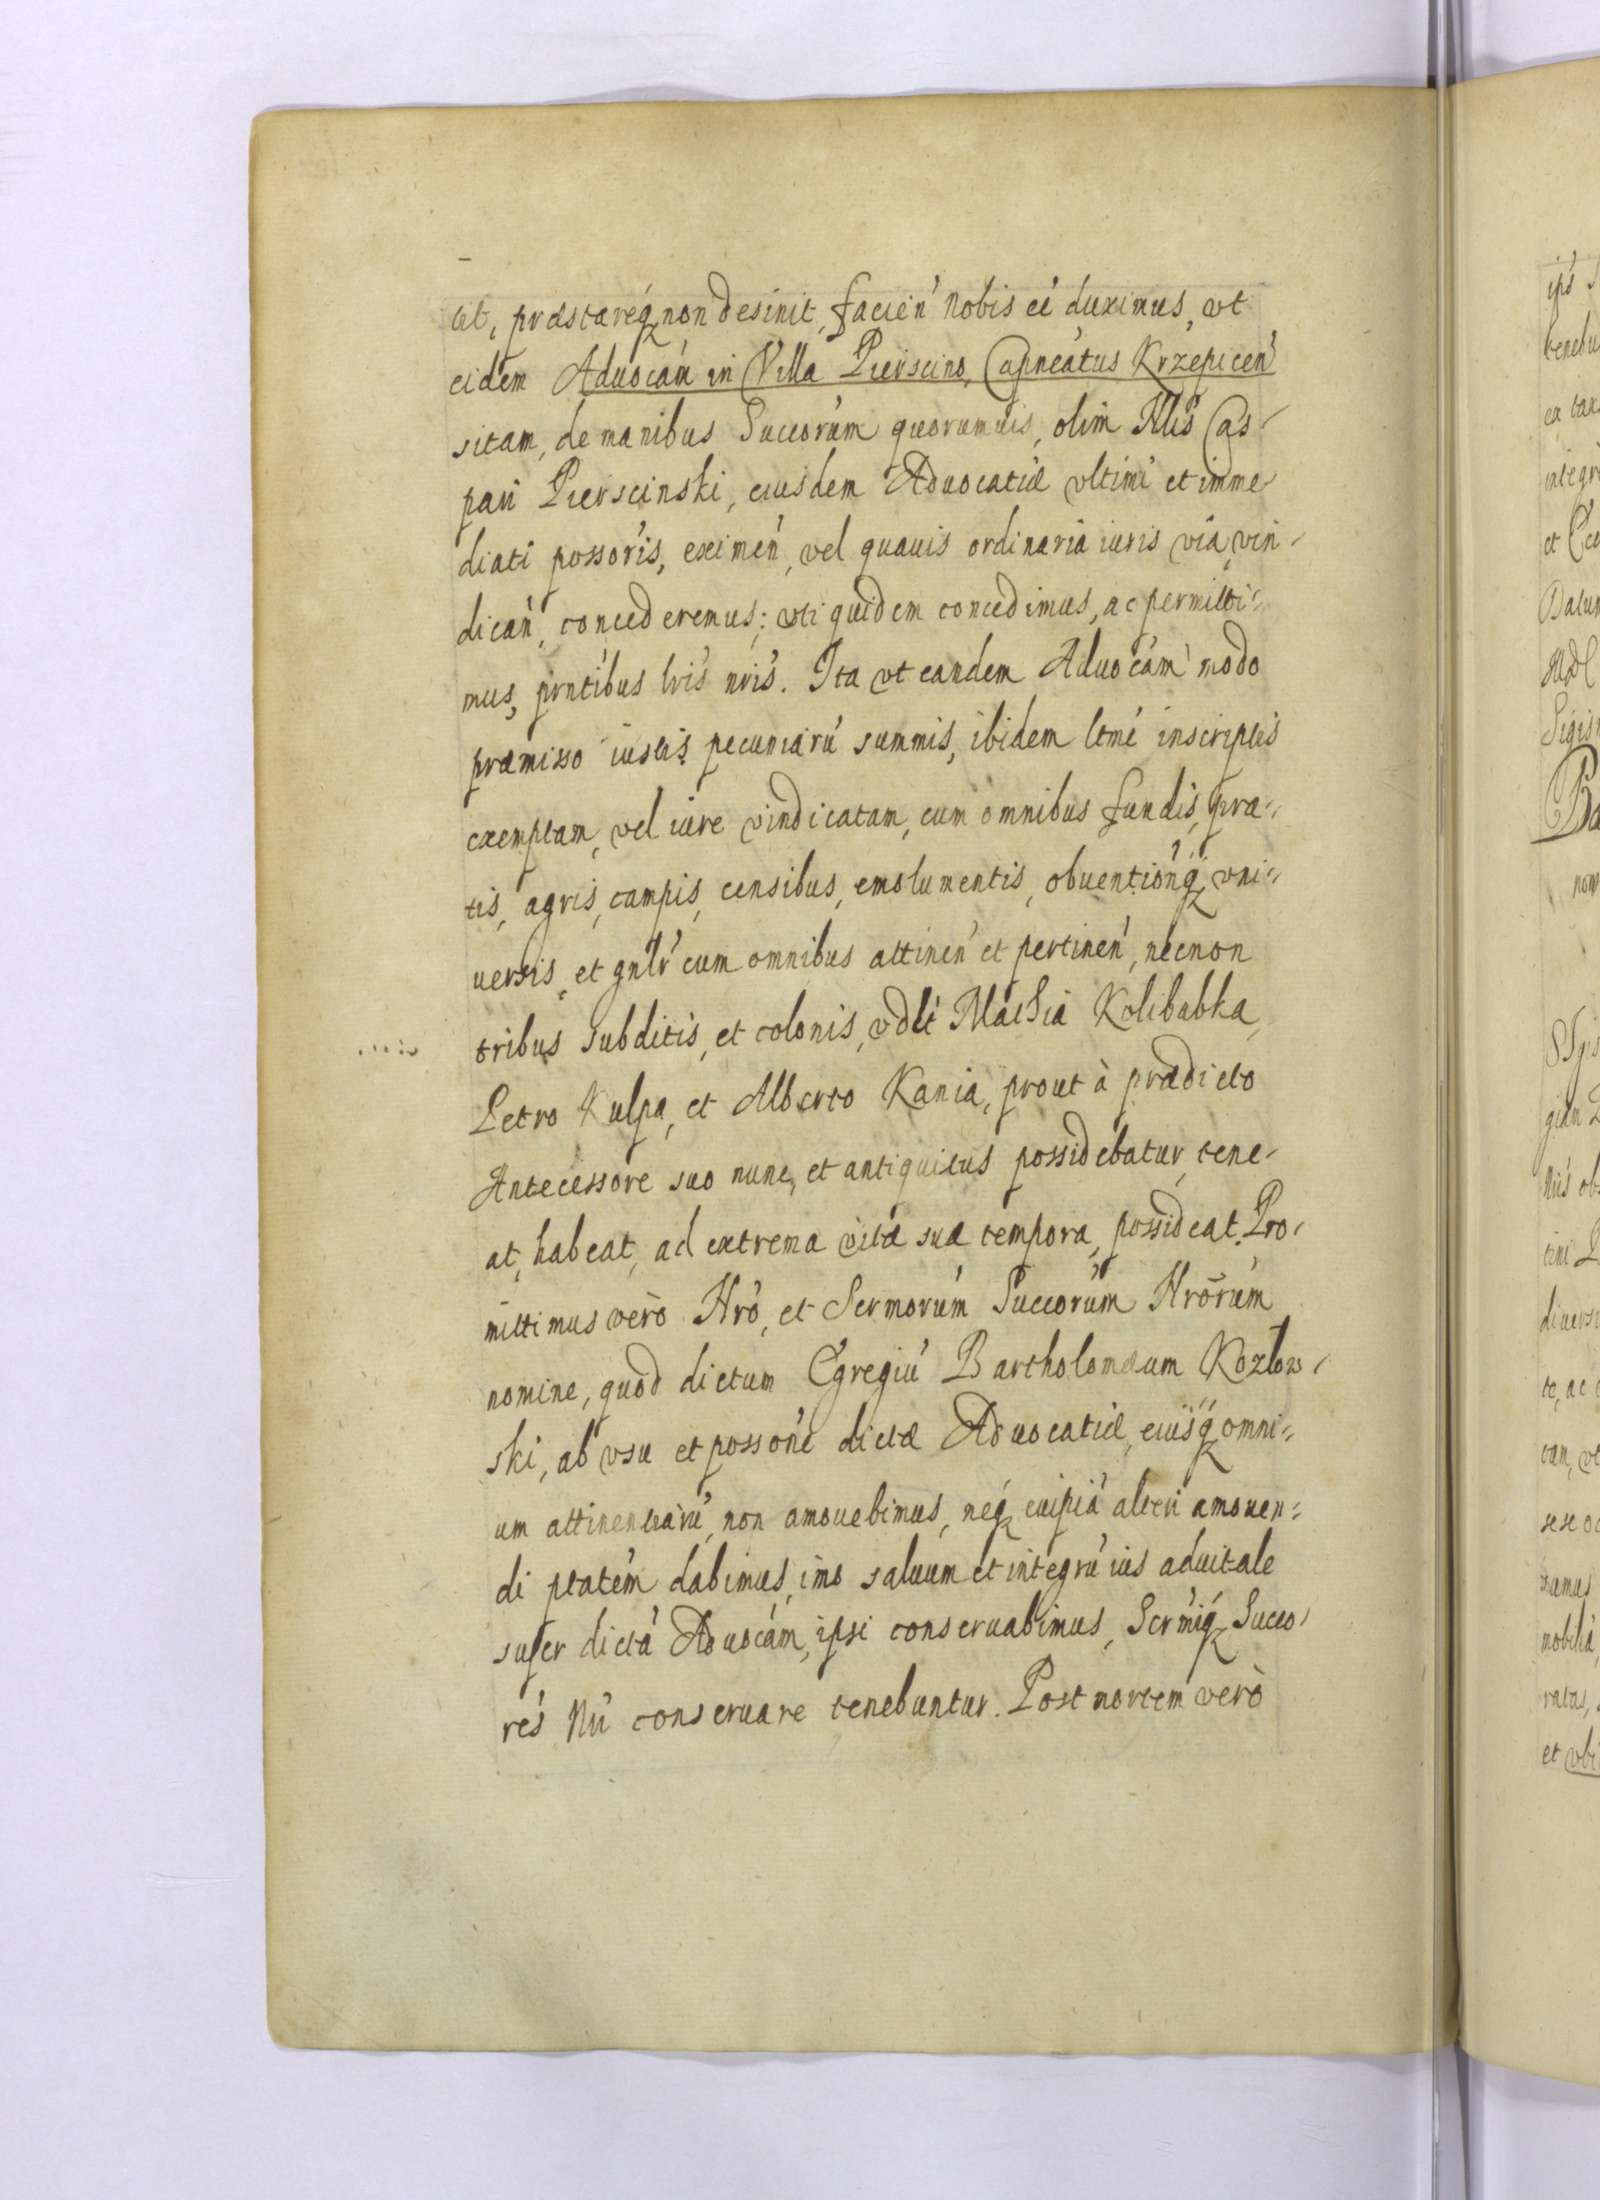 tit, præstareq non desinit, facien nobis eê duximus, vt
eidem Aduocam in Villa Pierscino, Capneatus Krzepicen
sitam, de manibus Succorum quorumuis, olim Nlis Cas-
pari Pierscinski, eiusdem Aduocatiæ vltimi et imme
diati possoris, eximen, vel quauis ordinaria iuris via, vin-
dican, concederemus; vti quidem concedimus, ac permitti-
mus, prntibus lris nris. Ita vt eandem Aduocam modo
præmisso iustis pecuniaru summis, ibidem ltme inscriptis
exemptam, vel iure vindicatam, cum omnibus fundis, pra-
tis, agris, campis, censibus, emolumentis, obuentionq vni-
uersis, et gnlr cum omnibus attinen et pertinen, necnon
tribus subditis, et colonis, vdlt Mathia Kolibabka,
Petro Kulpa, et Alberto Kania, prout à prædicto
Antecessore suo nunc, et antiquitus possidebatur, tene-
at, habeat, ad extrema vitæ suæ tempora, possideat. Pro-
mittimus verò Nro, et Sermorum Succorum Nrorum
nomine, quòd dictum Egregiu Bartholomæum Kozłow-
ski, ab vsu et possone dictæ Aduocatiæ, eiusq omni-
um attinentiaru, non amouebimus, neq cuipia alteri amouen-
di ptatem dabimus, imo saluum et integru ius aduitale
super dicta Aduocam, ipsi conseruabimus, Sermiq Succo-
res Nri conseruare tenebuntur. Post mortem verò